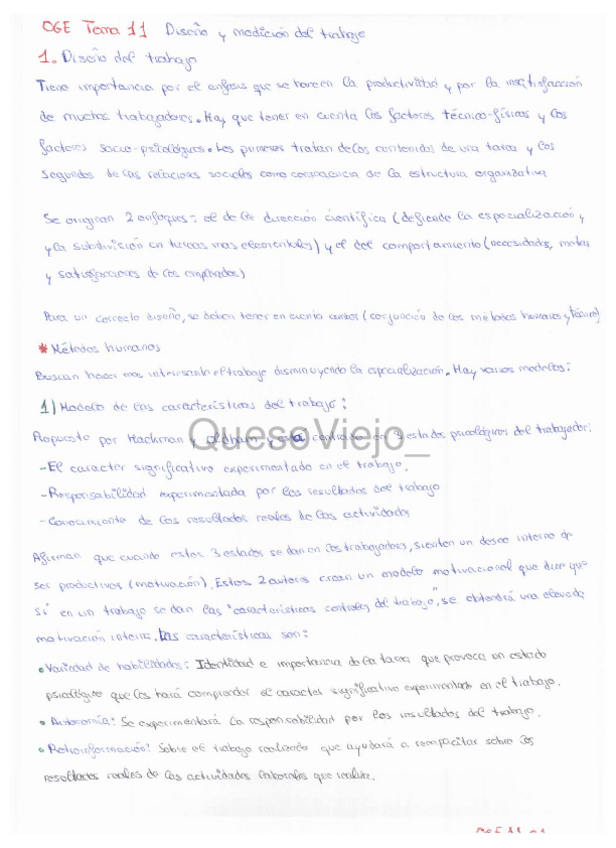 OGE Tema 11 Diseño y medición del trabajo
1. Diseño del trabajo
Tiene importancia por el enfasis que se hace en la productividad y por la insatisfacción
de muchos trabajadores. Hay que tener en cuenta los factores técnico-físicos y los
factores socio-psicológicos. Los primeros tratan de los contenidos de una tarea y los
segundos de las relaciones sociales como consecuencia de la estructura organizativa
Se originan 2 enfoques: el de la dirección científica (defiende la especialización y
y la subdivisión en tareas mas elementales) y el del comportamiento (necesidades, metas
y satisfacciones de los empleados)
Para un correcto diseño, se deben tener en cuenta ambos (conjunción de los métodos humanos y técnicos)
* Métodos humanos
Buscan hacer mas interesante el trabajo disminuyendo la especialización. Hay varios modelos:
1) Modelo de las características del trabajo:
QuesoViejo_
Propuesto por Hackman y Oldham y está centrado en 3 estados psicológicos del trabajador:
- El caracter significativo experimentado en el trabajo.
- Responsabilidad experimentada por los resultados del trabajo
- Conocimiento de los resultados reales de las actividades
Afirman que cuando estos 3 estados se dan en los trabajadores, sienten un deseo interno de
ser productivos (motivación). Estos 2 autores crean un modelo motivacional que dice que
si en un trabajo se dan las "características centrales del trabajo", se obtendrá una elevada
motivación interna. Las características son:
• Variedad de habilidades: Identidad e importancia de la tarea que provoca un estado
psicológico que los hará comprender el caracter significativo experimentado en el trabajo.
• Autonomía: Se experimentará la responsabilidad por los resultados del trabajo.
• Retroinformación: Sobre el trabajo realizado que ayudará a recapacitar sobre los
resultados reales de las actividades laborales que realice.